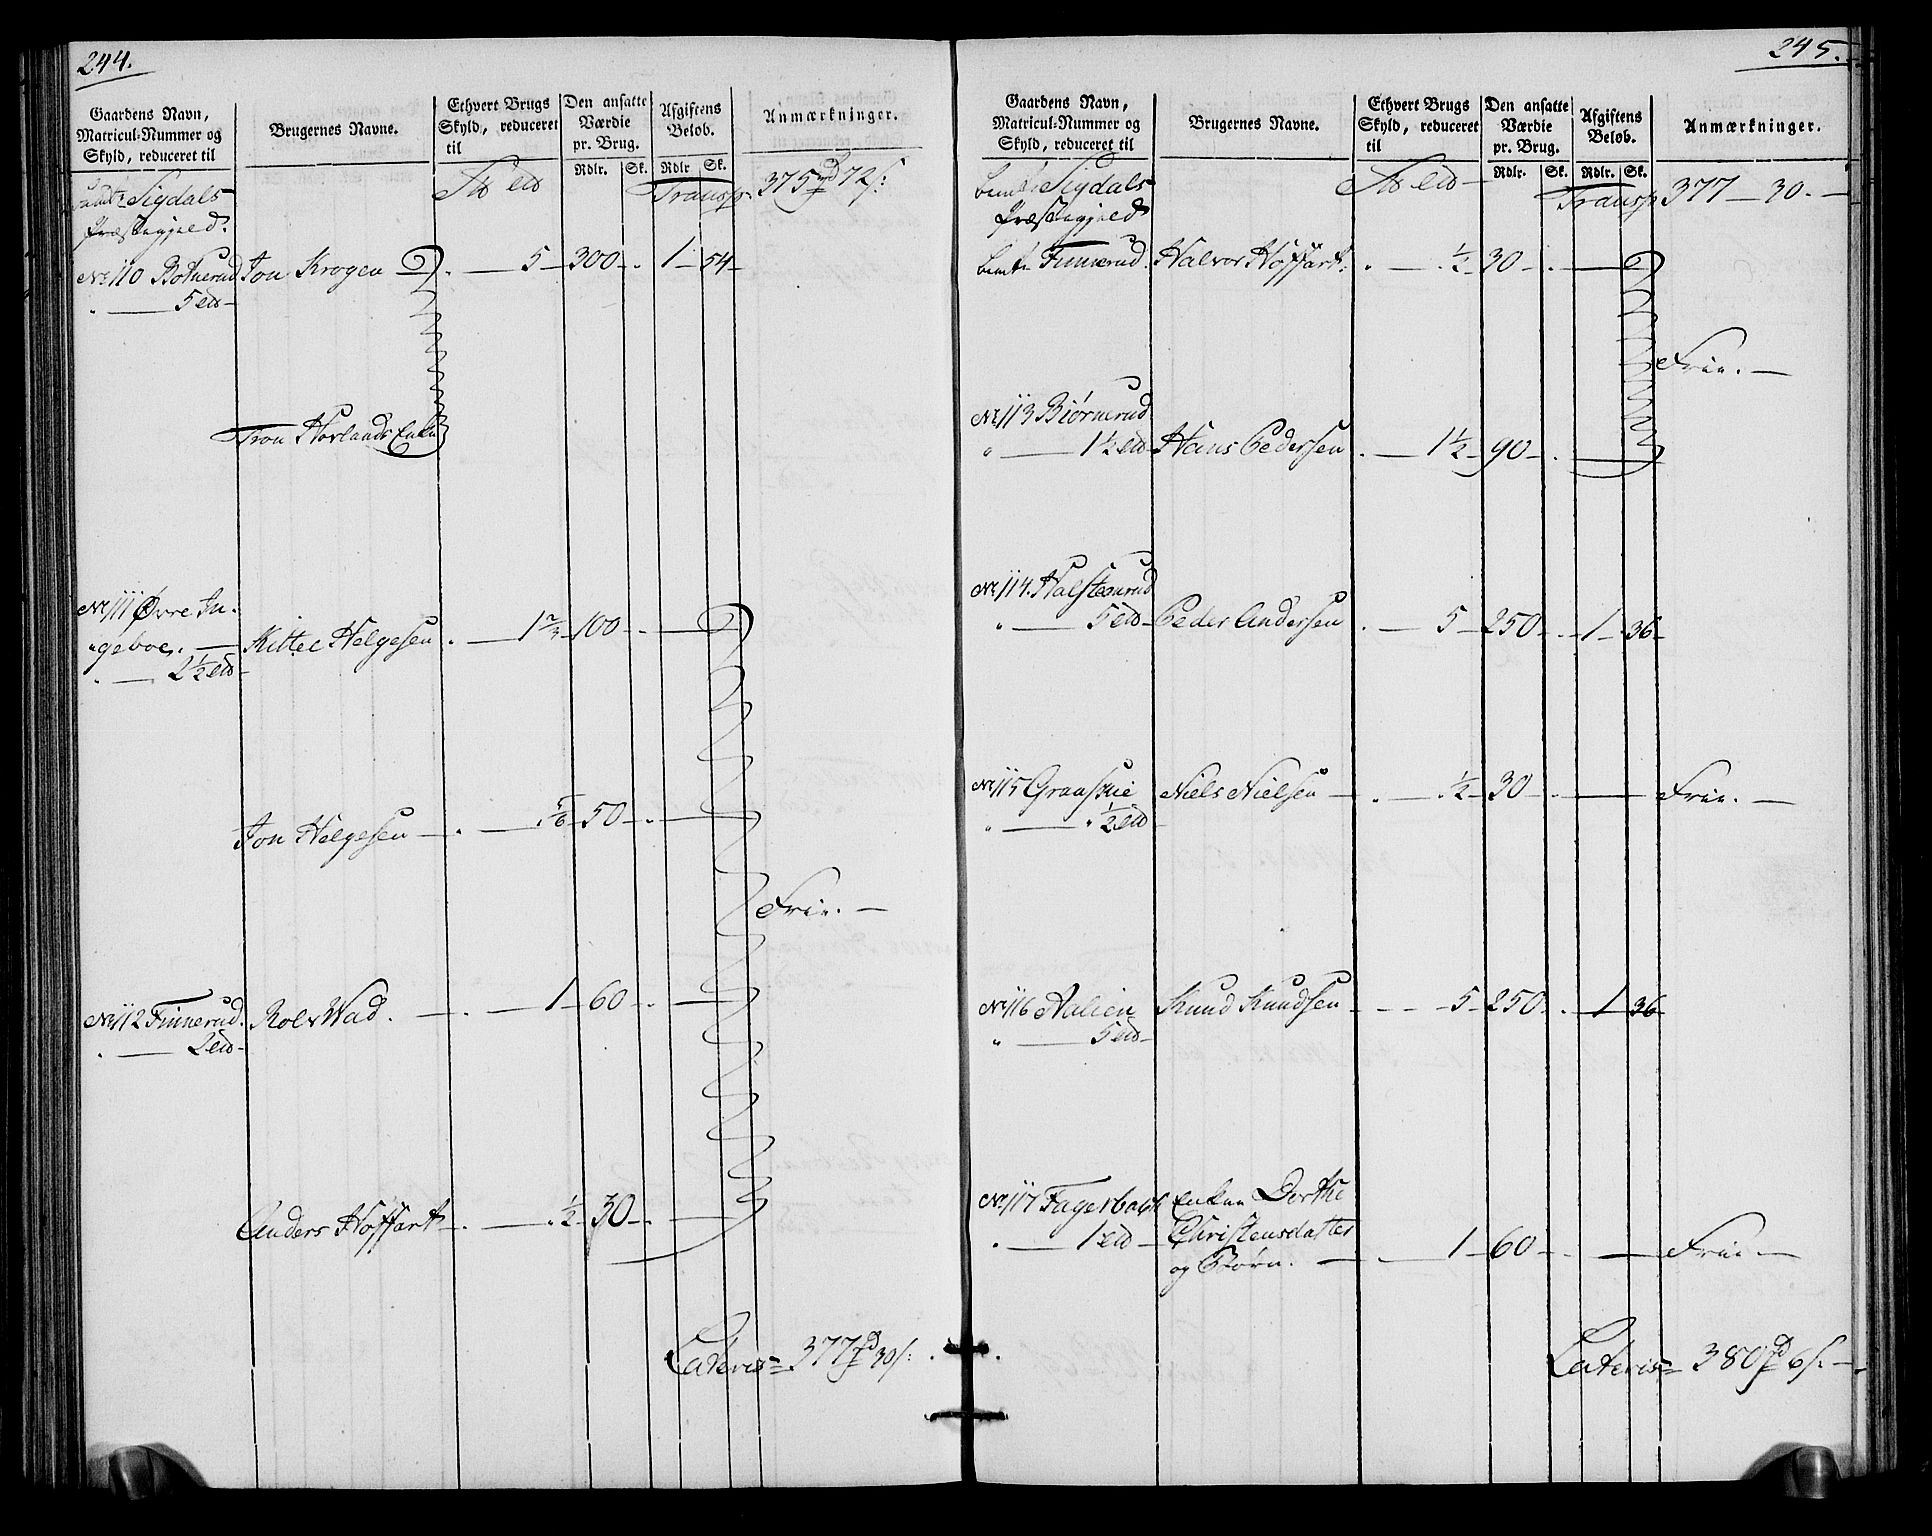 244.
Gaardens Navn,
Matricul-Nummer og
Skyld, reduceret til
Brugernes Navne.
Ethvert Brugs
Skyld, reduceret
til
Den ansatte
Værdie
pr. Brug.
Rdlr. Sk.
Afgiftens
Beløb.
Rdlr Sk.
Anmærkninger.
Sigdals
Præstegjeld.
Transp. 375 72
No 110 Botnerud Jon Krogen 5 300 1 54
5
Tron Horlands Enke
No 111 Øvre In-
geboe. Kittel Helgesen 1 2/3 100
2 1/2
Jon Helgesen 5/6 50
Frie.
No 112 Finnerud. Rolv Wad. 1 60
2
Anders Hoffart 1/2 30
Lateris 377 30
245.
Gaardens Navn,
Matricul-Nummer og
Skyld, reduceret til
Brugernes Navne.
Ethvert Brugs
Skyld, reduceret
til
Den ansatte
Værdie
pr. Brug.
Rdlr. Sk.
Afgiftens
Beløb.
Rdlr. Sk.
Anmærkninger.
bemte Sigdals
Præstegjeld
Transp 377 30
bemte Finnerud. Halvor Hoffart. 1/2 30
Frie.
No 113 Biørnerud
1 1/2 Hans Pedersen 1 1/2 90
No 114. Halsteenrud
5 Peder Andersen 5 250 1 36
No 115 Graaskie Niels Nielsen 1/2 30 Frie.
1/2
No 116 Aalien Knud Knudsen 5 250 1 36
5
No 117 Fagerbakk Enken Dorthe
1 Christensdatter
og Børn. 1 60 Frie
Lateris 380 6